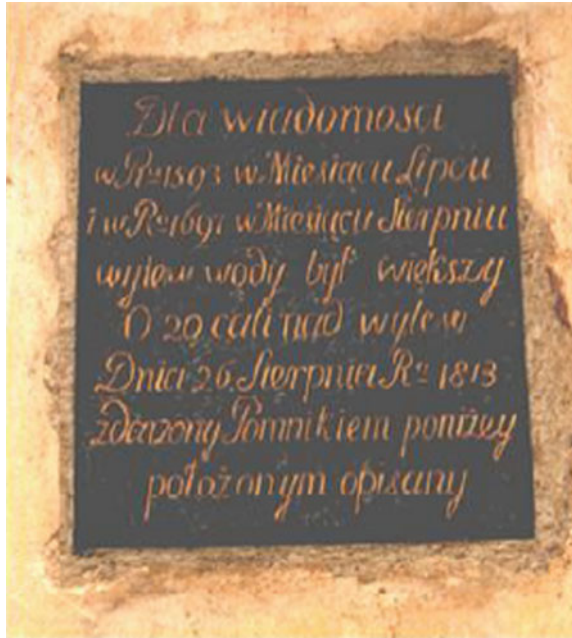 Dla wiadomosci
w Rº 1593 w Miesiącu Lipcu
i w Rº 1697 w Miesiącu Sierpniu
wylew wody był większy
O 20 cali nad wylew
Dnia 26 Sierpnia Rº 1813
zdarzony Pomnikiem poniżey
położonym opisany